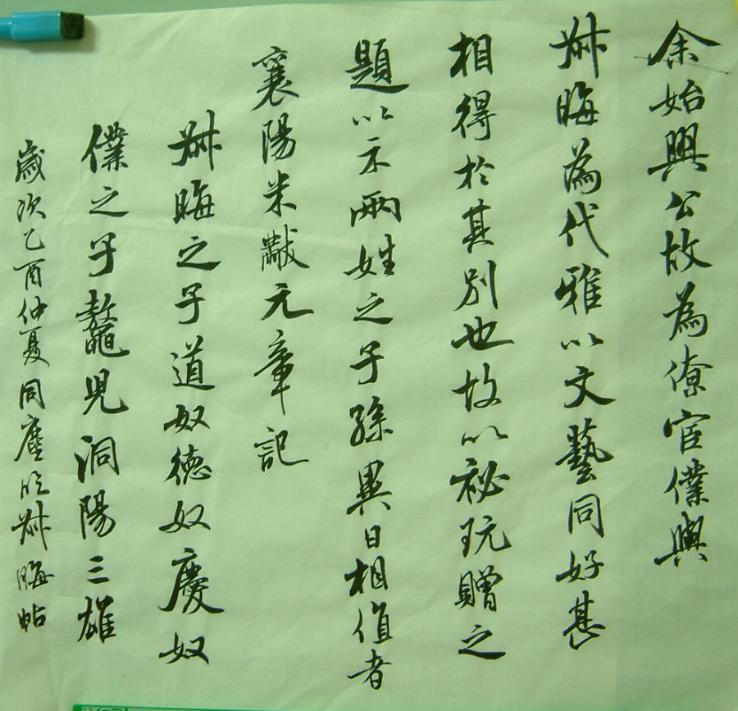 余始興公故為僚宦僕與
叔晦為代雅以文藝同好甚
相得於其別也故以祕玩贈之
題以示兩姓之子孫異日相值者
襄陽米黻元章記
叔晦之子道奴德奴慶奴
僕之子鼇兒洞陽三雄
歲次乙酉仲夏同臨叔晦帖